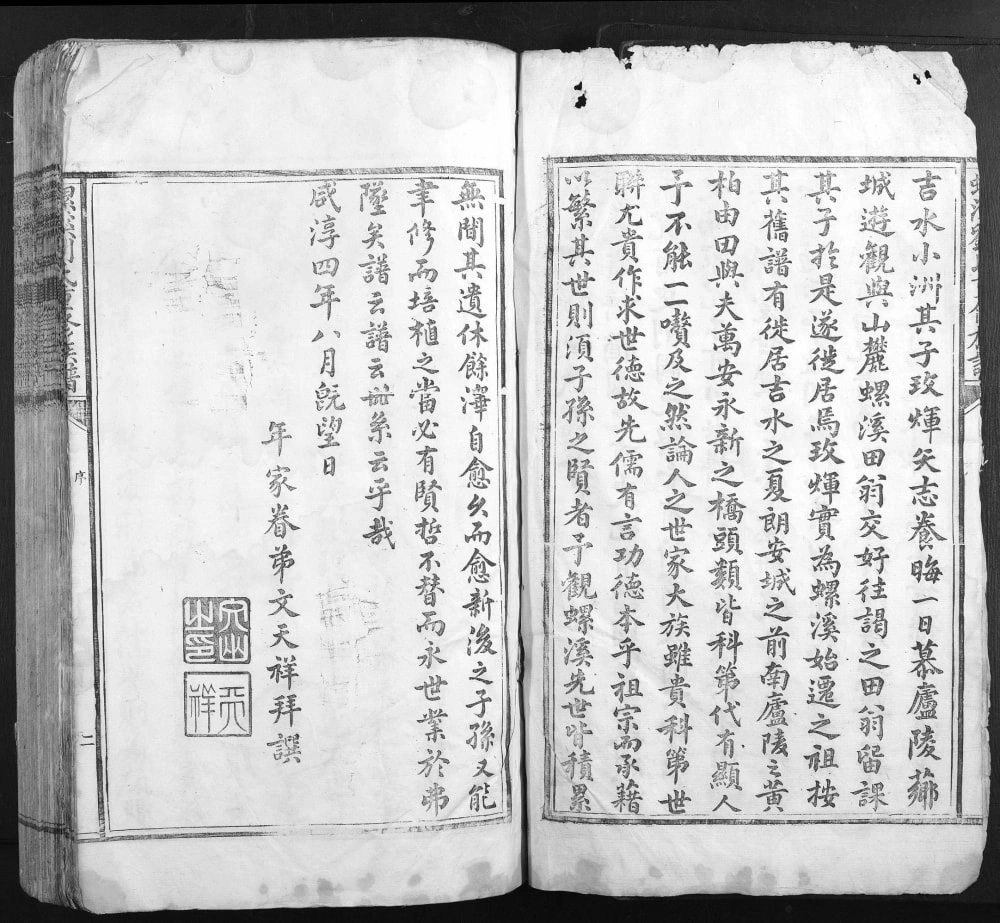 吉水小洲其子玫煇矢志養晦一日慕廬陵薌
城遊觀與山麓螺溪田翁交好往謁之田翁留課
其子於是遂徙居焉玫煇實為螺溪始遷之祖按
其舊譜有徙居吉水之夏朗安城之前南廬陵之黃
柏由田與夫萬安永新之橋頭類皆科第代有顯人
予不能一一囋及之然論人之世家大族雖貴科第世
聯尤貴作求世德故先儒有言功德本乎祖宗而承藉
以繁其世則須子孫之賢者予觀螺溪先世皆積累
無間其遺休餘澤自愈久而愈新後之子孫又能
聿修而培植之當必有賢哲不替而永世業於弗
墜矣譜云譜云世系云乎哉
咸淳四年八月旣望日
年家眷弟文天祥拜譔
文山之印
天祥
序
二